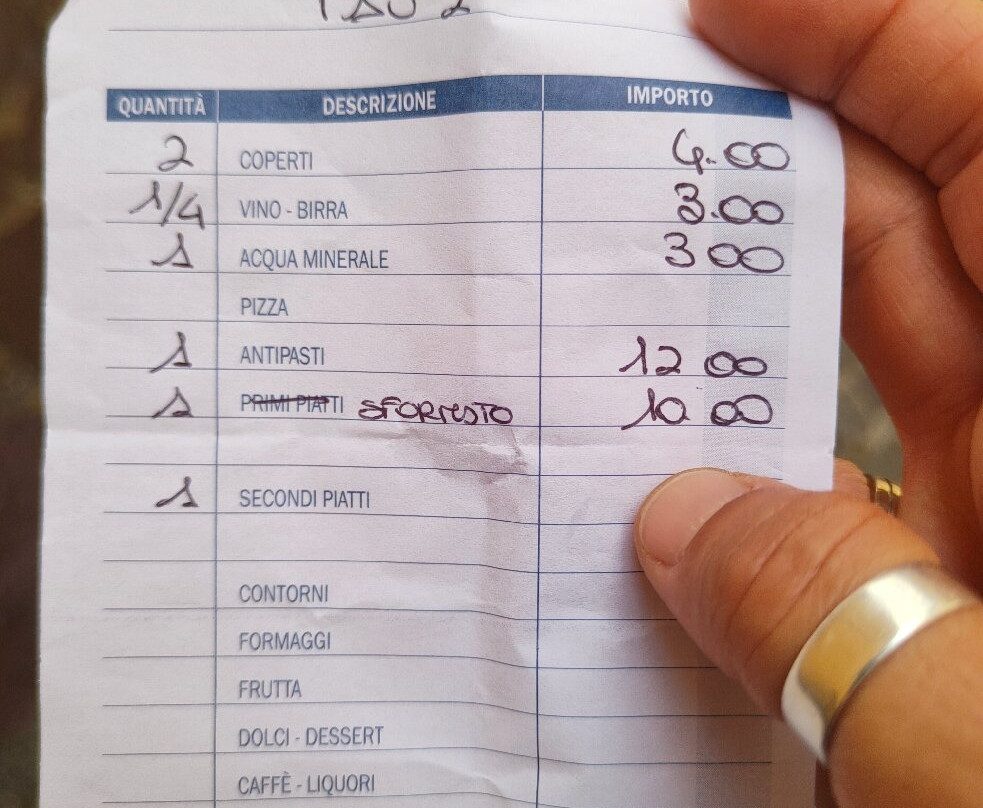 QUANTITÀ DESCRIZIONE IMPORTO
2 COPERTI 4.00
1/4 VINO - BIRRA 3.00
1 ACQUA MINERALE 3 00
PIZZA
1 ANTIPASTI 12 00
1 PRIMI PIATTI SFORMATO 10 00
1 SECONDI PIATTI
CONTORNI
FORMAGGI
FRUTTA
DOLCI - DESSERT
CAFFÈ - LIQUORI